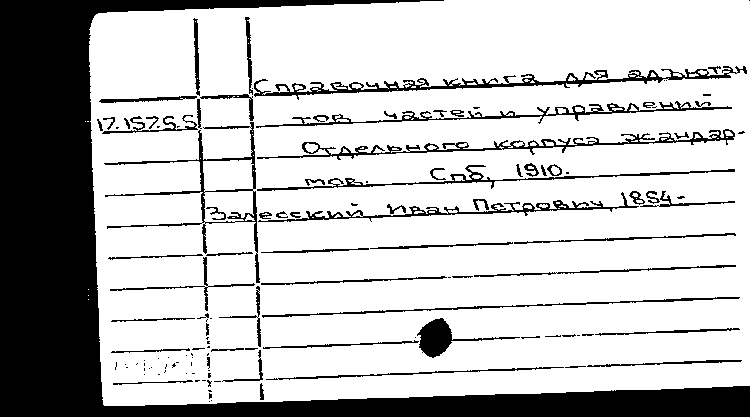 Справочная книга для адъютан
17.157.5.5 тов частей и управлений
Отдельного корпуса жандар-
мов. Спб, 1910.
Залесский, Иван Петрович, 1854-